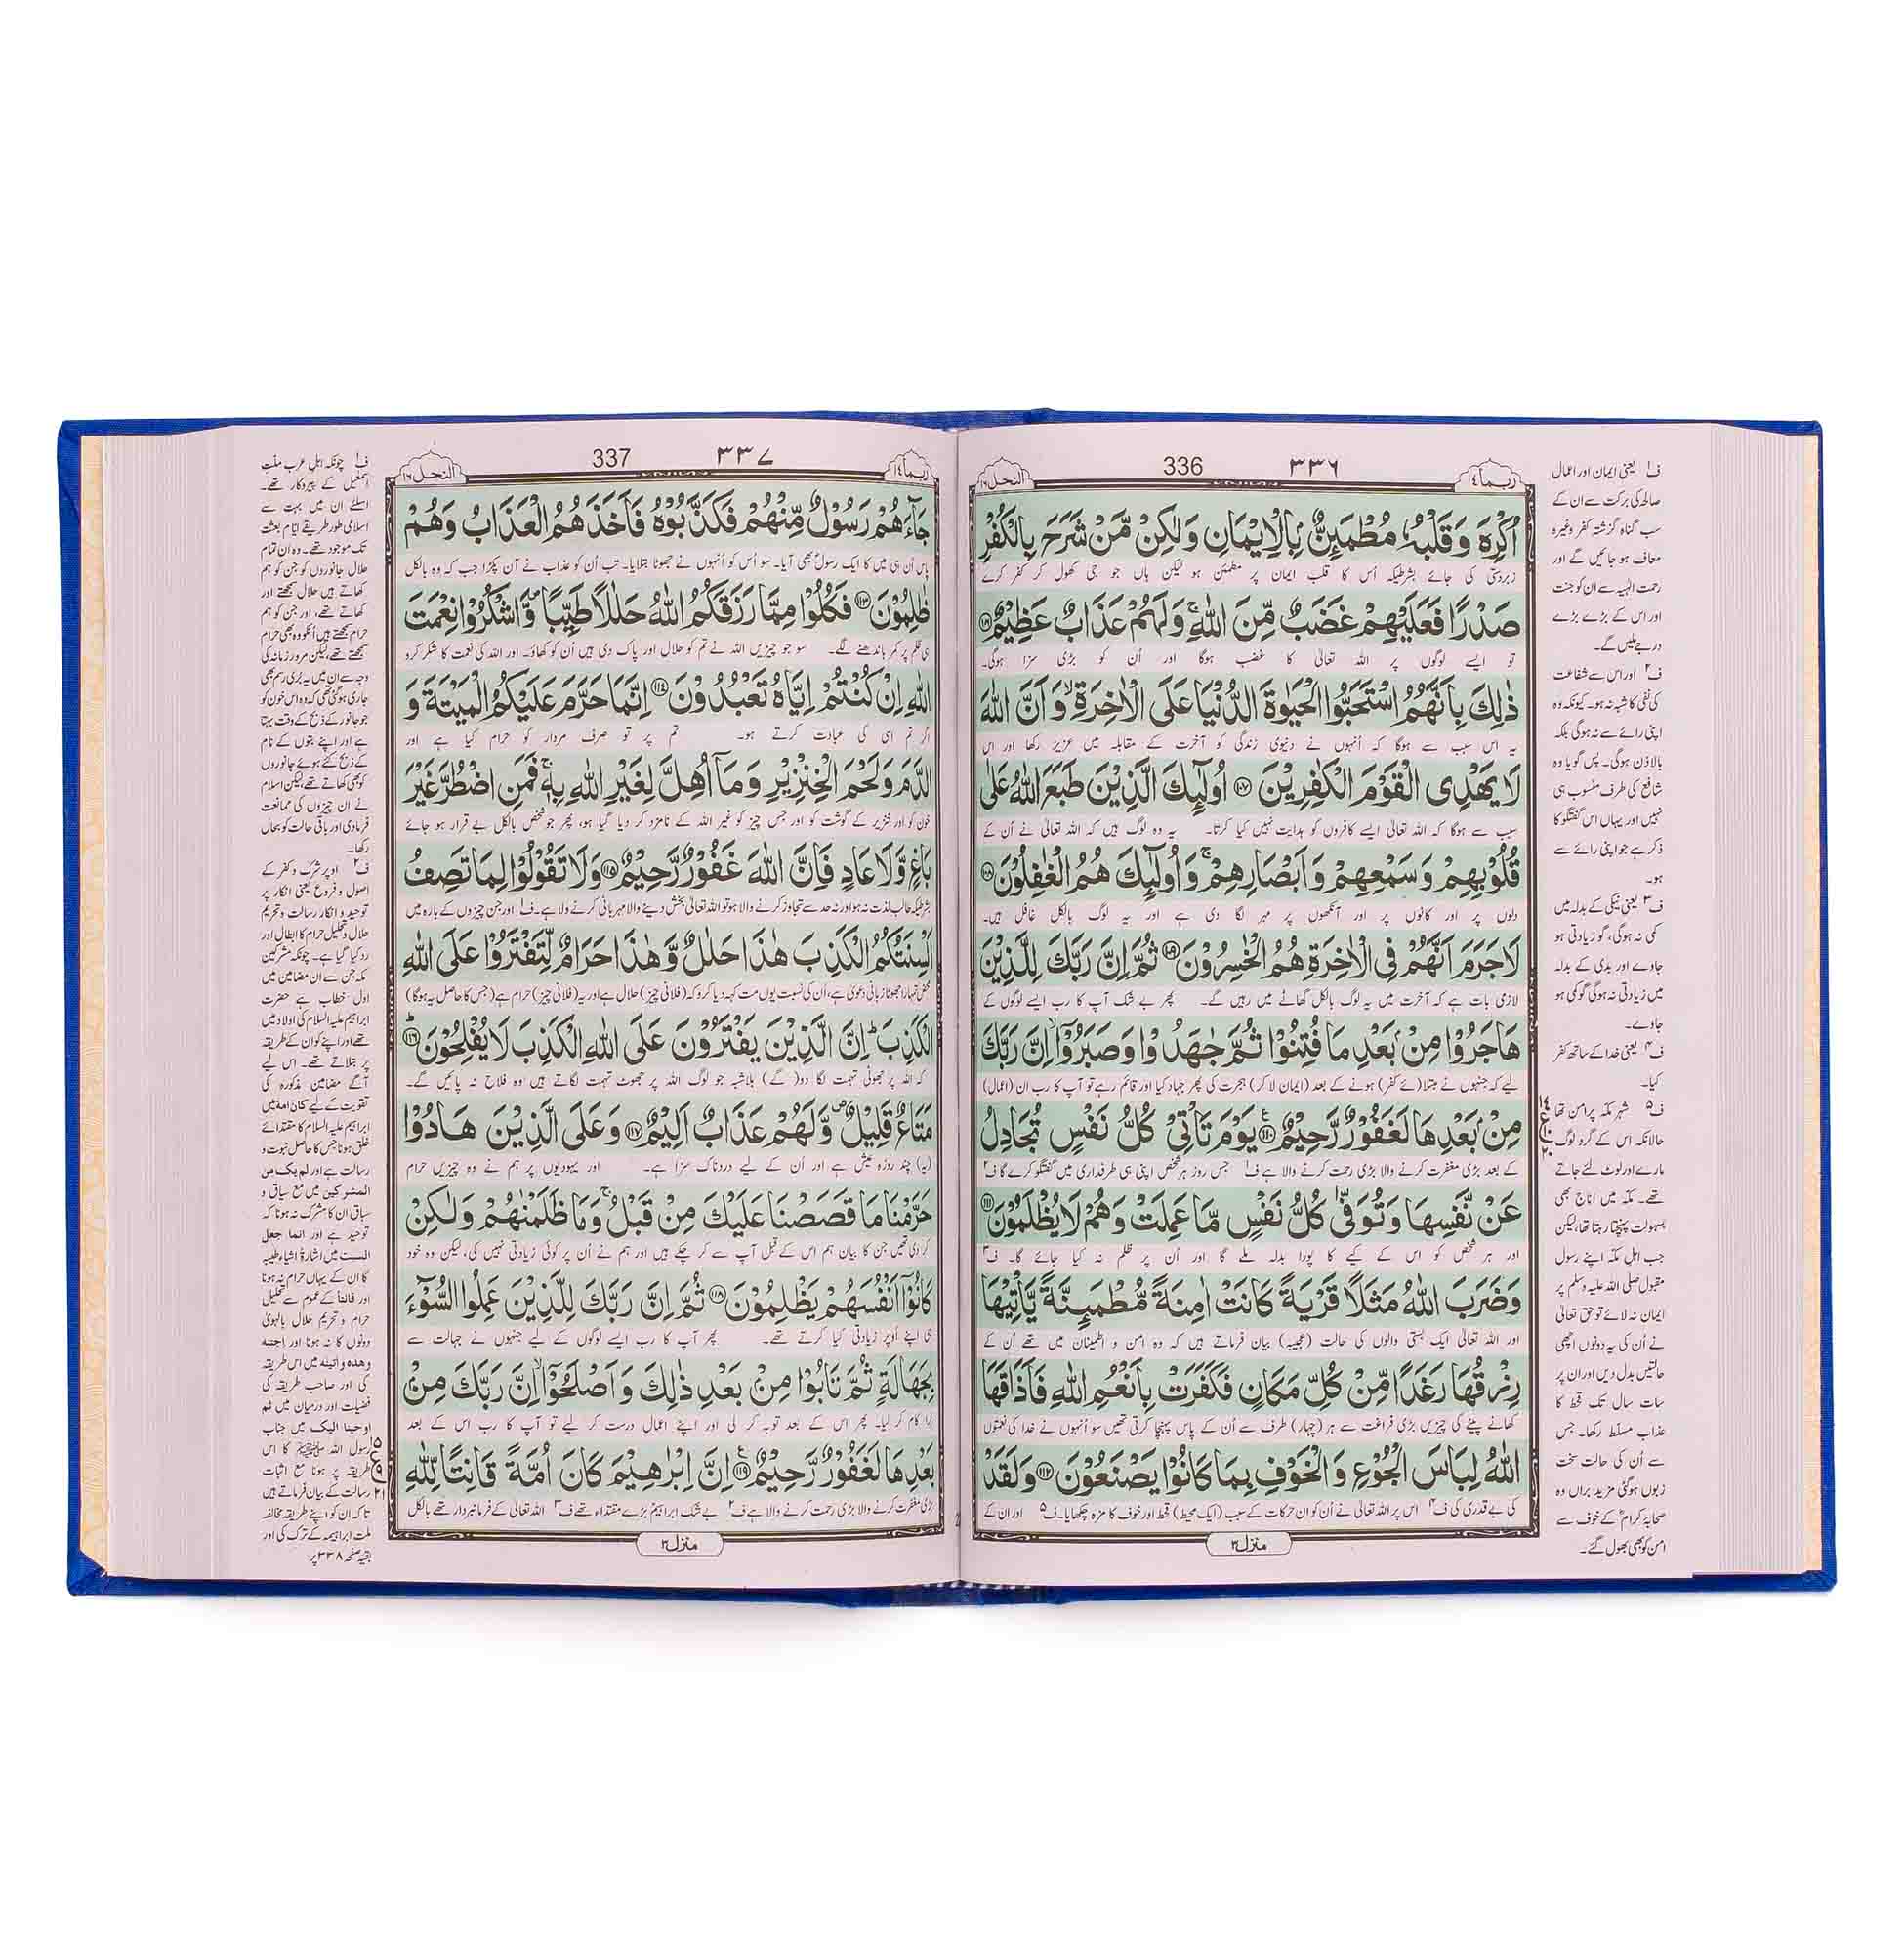 ربما ١٤
٣٣٦
336
النحل ١٦
اُكْرِهَ وَقَلْبُهٗ مُطْمَئِنٌّۢ بِالْاِيْمَانِ وَلٰكِنْ مَّنْ شَرَحَ بِالْكُفْرِ
زبردستی کی جائے بشرطیکہ اُس کا قلب ایمان پر مطمئن ہو لیکن ہاں جو جی کھول کر کفر کرے
صَدْرًا فَعَلَيْهِمْ غَضَبٌ مِّنَ اللّٰهِ ۚ وَلَهُمْ عَذَابٌ عَظِيْمٌ ﴿١٠٦﴾
تو ایسے لوگوں پر اللہ تعالیٰ کا غضب ہوگا اور اُن کو بڑی سزا ہوگی۔
ذٰلِكَ بِاَنَّهُمُ اسْتَحَبُّوا الْحَيٰوةَ الدُّنْيَا عَلَى الْاٰخِرَةِ ۙ وَاَنَّ اللّٰهَ
یہ اس سبب سے ہوگا کہ اُنہوں نے دنیوی زندگی کو آخرت کے مقابلہ میں عزیز رکھا اور اس
لَا يَهْدِى الْقَوْمَ الْكٰفِرِيْنَ ﴿١٠٧﴾ اُولٰٓئِكَ الَّذِيْنَ طَبَعَ اللّٰهُ عَلٰى
سبب سے ہوگا کہ اللہ تعالیٰ ایسے کافروں کو ہدایت نہیں کیا کرتا۔ یہ وہ لوگ ہیں کہ اللہ تعالیٰ نے اُن کے
قُلُوْبِهِمْ وَسَمْعِهِمْ وَاَبْصَارِهِمْ ۚ وَاُولٰٓئِكَ هُمُ الْغٰفِلُوْنَ ﴿١٠٨﴾
دلوں پر اور کانوں پر اور آنکھوں پر مہر لگا دی ہے اور یہ لوگ بالکل غافل ہیں۔
لَا جَرَمَ اَنَّهُمْ فِى الْاٰخِرَةِ هُمُ الْخٰسِرُوْنَ ﴿١٠٩﴾ ثُمَّ اِنَّ رَبَّكَ لِلَّذِيْنَ
لازمی بات ہے کہ آخرت میں یہ لوگ بالکل گھاٹے میں رہیں گے۔ پھر بے شک آپ کا رب ایسے لوگوں کے
هَاجَرُوْا مِنْۢ بَعْدِ مَا فُتِنُوْا ثُمَّ جٰهَدُوْا وَصَبَرُوْٓا ۙ اِنَّ رَبَّكَ
لیے کہ جنہوں نے مبتلا(ئے کفر) ہونے کے بعد (ایمان لا کر) ہجرت کی پھر جہاد کیا اور قائم رہے تو آپ کا رب ان (اعمال)
مِنْۢ بَعْدِهَا لَغَفُوْرٌ رَّحِيْمٌ ﴿١١٠﴾ يَوْمَ تَاْتِىْ كُلُّ نَفْسٍ تُجَادِلُ
کے بعد بڑی مغفرت کرنے والا بڑی رحمت کرنے والا ہے ف۱ جس روز ہر شخص اپنی ہی طرفداری میں گفتگو کرے گا ف۲
عَنْ نَّفْسِهَا وَتُوَفّٰى كُلُّ نَفْسٍ مَّا عَمِلَتْ وَهُمْ لَا يُظْلَمُوْنَ ﴿١١١﴾
اور ہر شخص کو اس کے کیے کا پورا بدلہ ملے گا اور اُن پر ظلم نہ کیا جائے گا۔ ف۳
وَضَرَبَ اللّٰهُ مَثَلًا قَرْيَةً كَانَتْ اٰمِنَةً مُّطْمَئِنَّةً يَّاْتِيْهَا
اور اللہ تعالیٰ ایک بستی والوں کی حالت (عجیبہ) بیان فرماتے ہیں کہ وہ امن و اطمینان میں تھے اُن کے
رِزْقُهَا رَغَدًا مِّنْ كُلِّ مَكَانٍ فَكَفَرَتْ بِاَنْعُمِ اللّٰهِ فَاَذَاقَهَا
کھانے پینے کی چیزیں بڑی فراغت سے ہر (چہار) طرف سے اُن کے پاس پہنچا کرتی تھیں سو اُنہوں نے خدا کی نعمتوں
اللّٰهُ لِبَاسَ الْجُوْعِ وَالْخَوْفِ بِمَا كَانُوْا يَصْنَعُوْنَ ﴿١١٢﴾ وَلَقَدْ
کی بے قدری کی ف۴ اس پر اللہ تعالیٰ نے اُن کو ان حرکات کے سبب (ایک محیط) قحط اور خوف کا مزہ چکھایا۔ ف۵ اور ان کے
منزل ٣
ف۱ یعنی ایمان اور اعمال
صالحہ کی برکت سے ان کے
سب گناہ گزشتہ کفر وغیرہ
معاف ہو جائیں گے اور
رحمت الٰہیہ سے ان کو جنت
اور اس کے بڑے بڑے
درجے ملیں گے۔
ف۲ اور اس سے شفاعت
کی نفی کا شبہ نہ ہو۔ کیونکہ وہ
اپنی رائے سے نہ ہوگی بلکہ
بالاذن ہوگی۔ پس گویا وہ
شافع کی طرف منسوب ہی
نہیں اور یہاں اس گفتگو کا
ذکر ہے جو اپنی رائے سے
ہو۔
ف۳ یعنی نیکی کے بدلہ میں
کمی نہ ہوگی، گو زیادتی ہو
جاوے اور بدی کے بدلہ
میں زیادتی نہ ہوگی گو کمی ہو
جاوے۔
ف۴ یعنی خدا کے ساتھ کفر
کیا۔
ف۵ شہر مکہ پر امن تھا
حالانکہ اس کے گرد لوگ
مارے اور لوٹ لئے جاتے
تھے۔ مکہ میں اناج بھی
بسہولت پہنچتا رہتا تھا، لیکن
جب اہل مکہ اپنے رسول
مقبول صلی اللہ علیہ وسلم پر
ایمان نہ لائے تو حق تعالیٰ
نے اُن کی یہ دونوں اچھی
حالتیں بدل دیں اور ان پر
سات سال تک قحط کا
عذاب مسلط رکھا۔ جس
سے اُن کی حالت سخت
زبوں ہوگئی مزید براں وہ
صحابہ کرامؓ کے خوف سے
امن کو بھی بھول گئے۔
ربما ١٤
٣٣٧
337
النحل ١٦
جَآءَهُمْ رَسُوْلٌ مِّنْهُمْ فَكَذَّبُوْهُ فَاَخَذَهُمُ الْعَذَابُ وَهُمْ
پاس اُن ہی میں کا ایک رسول بھی آیا۔ سو اُس کو اُنہوں نے جھوٹا بتلایا۔ تب اُن کو عذاب نے آن پکڑا جب کہ وہ بالکل
ظٰلِمُوْنَ ﴿١١٣﴾ فَكُلُوْا مِمَّا رَزَقَكُمُ اللّٰهُ حَلٰلًا طَيِّبًا ۪ وَّاشْكُرُوْا نِعْمَتَ
ہی ظلم پر کمر باندھنے لگے۔ سو جو چیزیں اللہ نے تم کو حلال اور پاک دی ہیں اُن کو کھاؤ۔ اور اللہ کی نعمت کا شکر کرو
اللّٰهِ اِنْ كُنْتُمْ اِيَّاهُ تَعْبُدُوْنَ ﴿١١٤﴾ اِنَّمَا حَرَّمَ عَلَيْكُمُ الْمَيْتَةَ وَ
اگر تم اسی کی عبادت کرتے ہو۔ تم پر تو صرف مردار کو حرام کیا ہے اور
الدَّمَ وَلَحْمَ الْخِنْزِيْرِ وَمَآ اُهِلَّ لِغَيْرِ اللّٰهِ بِهٖ ۚ فَمَنِ اضْطُرَّ غَيْرَ
خون کو اور خنزیر کے گوشت کو اور جس چیز کو غیر اللہ کے نامزد کر دیا گیا ہو، پھر جو شخص بالکل بے قرار ہو جائے
بَاغٍ وَّلَا عَادٍ فَاِنَّ اللّٰهَ غَفُوْرٌ رَّحِيْمٌ ﴿١١٥﴾ وَلَا تَقُوْلُوْا لِمَا تَصِفُ
بشرطیکہ طالب لذت نہ ہو اور نہ حد سے تجاوز کرنے والا ہو تو اللہ تعالیٰ بخش دینے والا مہربانی کرنے والا ہے۔ ف۱ اور جن چیزوں کے بارہ میں
اَلْسِنَتُكُمُ الْكَذِبَ هٰذَا حَلٰلٌ وَّهٰذَا حَرَامٌ لِّتَفْتَرُوْا عَلَى اللّٰهِ
محض تمہارا جھوٹا زبانی دعویٰ ہے، اُن کی نسبت یوں مت کہہ دیا کرو کہ (فلانی چیز) حلال ہے اور یہ (فلانی چیز) حرام ہے (جس کا حاصل یہ ہوگا)
الْكَذِبَ ؕ اِنَّ الَّذِيْنَ يَفْتَرُوْنَ عَلَى اللّٰهِ الْكَذِبَ لَا يُفْلِحُوْنَ ﴿١١٦﴾
کہ اللہ پر جھوٹی تہمت لگا دو( گے) بلاشبہ جو لوگ اللہ پر جھوٹ تہمت لگاتے ہیں وہ فلاح نہ پائیں گے۔
مَتَاعٌ قَلِيْلٌ ۪ وَّلَهُمْ عَذَابٌ اَلِيْمٌ ﴿١١٧﴾ وَعَلَى الَّذِيْنَ هَادُوْا
(یہ) چند روزہ عیش ہے اور اُن کے لیے دردناک سزا ہے۔ اور یہودیوں پر ہم نے وہ چیزیں حرام
حَرَّمْنَا مَا قَصَصْنَا عَلَيْكَ مِنْ قَبْلُ ۚ وَمَا ظَلَمْنٰهُمْ وَلٰكِنْ
کر دی تھیں جن کا بیان ہم اس کے قبل آپ سے کر چکے ہیں اور ہم نے اُن پر کوئی زیادتی نہیں کی، لیکن وہ خود
كَانُوْٓا اَنْفُسَهُمْ يَظْلِمُوْنَ ﴿١١٨﴾ ثُمَّ اِنَّ رَبَّكَ لِلَّذِيْنَ عَمِلُوا السُّوْٓءَ
ہی اپنے اُوپر زیادتی کیا کرتے تھے۔ پھر آپ کا رب ایسے لوگوں کے لیے جنہوں نے جہالت سے
بِجَهَالَةٍ ثُمَّ تَابُوْا مِنْۢ بَعْدِ ذٰلِكَ وَاَصْلَحُوْٓا ۙ اِنَّ رَبَّكَ مِنْۢ
بُرا کام کر لیا۔ پھر اس کے بعد توبہ کر لی اور اپنے اعمال درست کر لیے تو آپ کا رب اس کے بعد
بَعْدِهَا لَغَفُوْرٌ رَّحِيْمٌ ﴿١١٩﴾ اِنَّ اِبْرٰهِيْمَ كَانَ اُمَّةً قَانِتًا لِّلّٰهِ
بڑی مغفرت کرنے والا بڑی رحمت کرنے والا ہے ف۲ بے شک ابراہیم بڑے مقتداء تھے ف۳ اللہ تعالیٰ کے فرمانبردار تھے بالکل
منزل ٣
ف۱ چونکہ اہل عرب ملّتِ
اسمٰعیل کے پیروکار تھے۔
اسلئے ان میں بہت سے
اسلامی طور طریقے ایّام بعثت
تک موجود تھے۔ وہ ان تمام
حلال جانوروں کو جن کو ہم
کھاتے ہیں حلال سمجھتے اور
کھاتے تھے، اور جن کو ہم
حرام سمجھتے ہیں اُنکو وہ بھی حرام
سمجھتے تھے، لیکن مرور زمانہ کی
وجہ سے ان میں یہ بُری رسم بھی
جاری ہوگئی تھی کہ وہ اس خون کو
جو جانور کے ذبح کے وقت بہتا
ہے اور اپنے بتوں کے نام
کے ذبح کئے ہوئے جانوروں
کو بھی کھاتے تھے، لیکن اسلام
نے ان چیزوں کی ممانعت
فرمادی اور باقی حالت کو بحال
رکھا۔
ف۲ اوپر شرک و کفر کے
اصول و فروع یعنی انکار پر
توحید و انکار رسالت و تحریم
حلال و تحلیل حرام کا ابطال اور
رد کیا گیا ہے۔ چونکہ مشرکین
مکہ جن سے ان مضامین میں
اول خطاب ہے حضرت
ابراہیم علیہ السلام کی اولاد میں
تھے اور اپنے کو ان کے طریقہ
پر بتلاتے تھے۔ اس لیے
آگے مضامین مذکورہ کی
تقویت کے لیے كان امة میں
ابراہیم علیہ السلام کا مقتدائے
خلق ہونا جس کا حاصل نبوت و
رسالت ہے اور لم يك من
المشركين میں مع سباق و
سیاق ان کا مشرک نہ ہونا کہ
توحید ہے اور انما جعل
السبت میں اشارۃً اشیاء طیبہ
کا ان کے یہاں حرام نہ ہونا
اور قانتا کے عموم سے تحلیل
حرام و تحریم حلال بالہویٰ
دونوں کا نہ ہونا اور اجتبه
وهده واتينه میں اس طریقہ
کی اور صاحب طریقہ کی
فضیلت اور درمیان میں ثم
اوحينا اليك میں جناب
رسول اللہ ﷺ کا اس
طریقہ پر ہونا مع اثبات
رسالت کے بیان فرماتے ہیں
تا کہ ان کو اپنے طریقہ مخالفہ
ملت ابراہیمہ کے ترک کی اور
بقیہ صفحہ ۳۳۸ پر